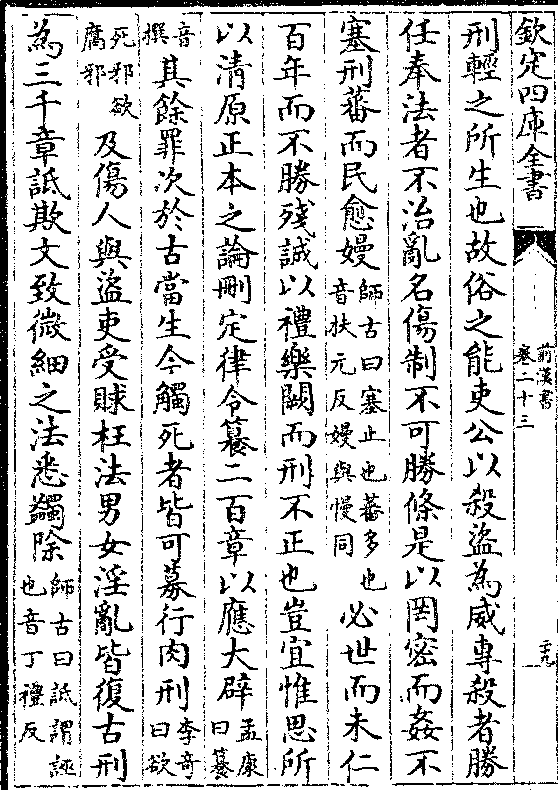 欽定四庫全書
前漢書
卷二十三
二十九
刑輕之所生也故俗之能吏公以殺盜為威專殺者勝
任奉法者不治亂名傷制不可勝條是以罔密而姦不
塞刑蕃而民愈嫚師古曰塞止也蕃多也
音扶元反嫚與慢同必世而未仁
百年而不勝殘誠以禮樂闕而刑不正也豈宜惟思所
以清原正本之論刪定律令籑二百章以應大辟孟康
曰籑
音
撰其餘罪次於古當生今觸死者皆可募行肉刑李奇
曰欲
死邪欲
腐邪及傷人與盜吏受賕枉法男女淫亂皆復古刑
為三千章詆欺文致微細之法悉蠲除師古曰詆謂誣
也音丁禮反